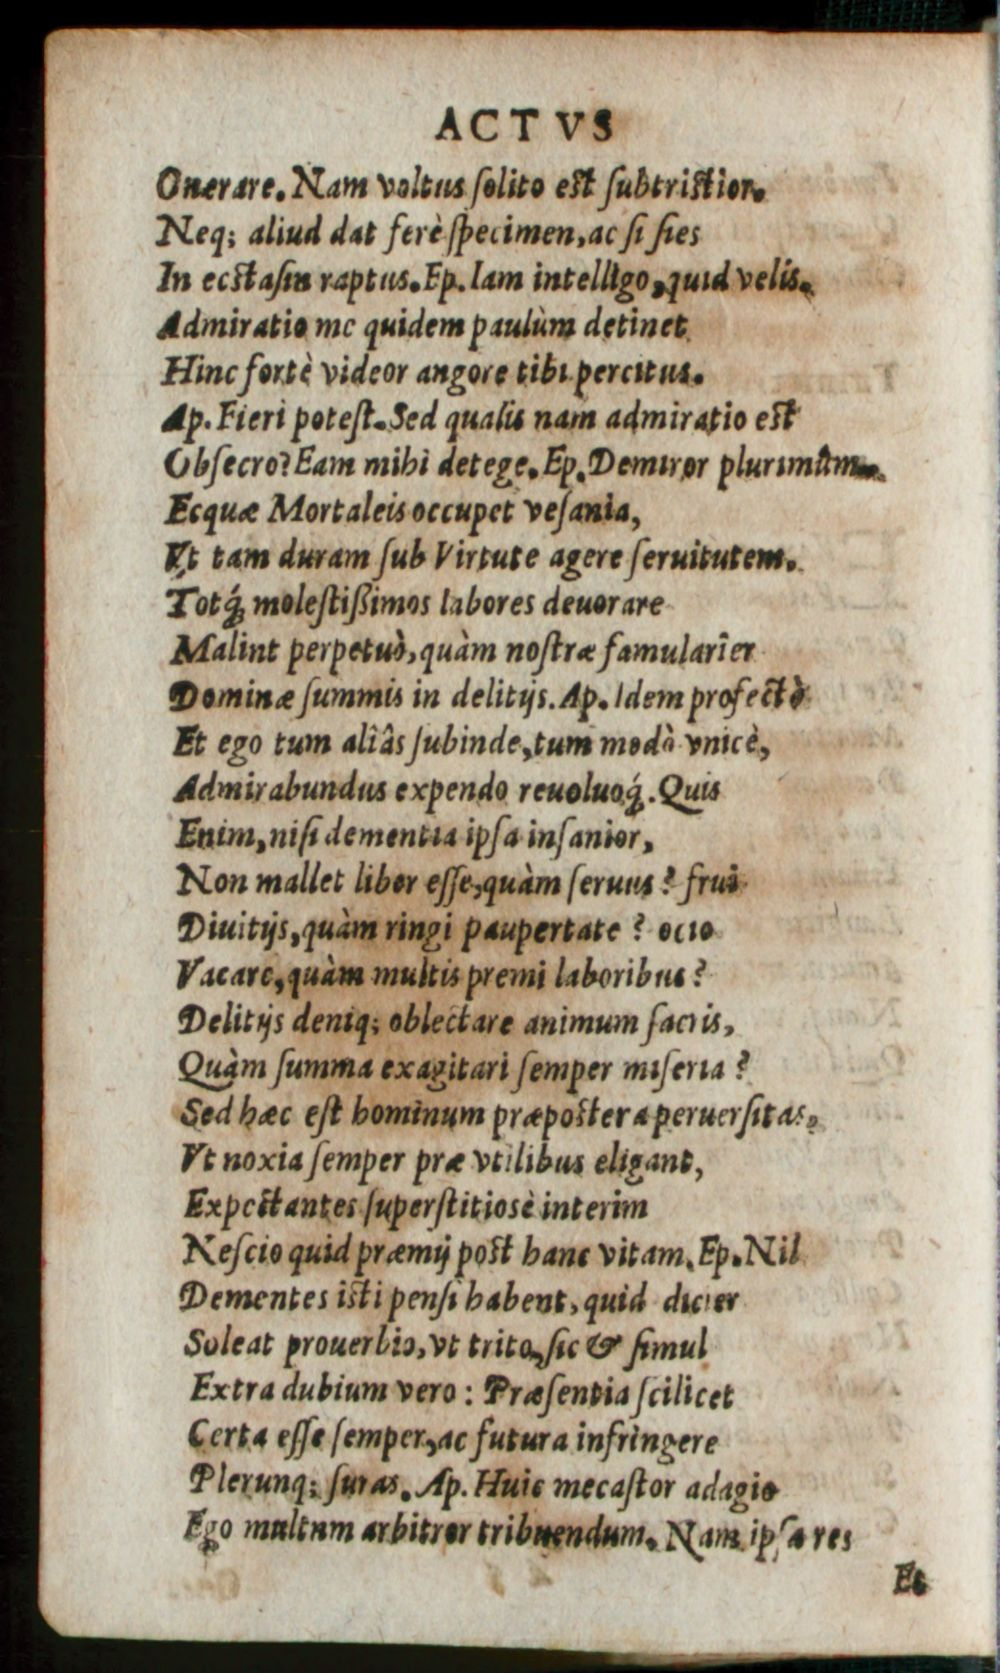 ACTVS
Onerare. Nam voltus ſolito eſt ſubtriſtior.
Neq; aliud dat ferè ſpecimen, ac ſi ſies
In ecſtaſin raptus. Ep. Iam intelligo, quid velis.
Admiratio me quidem paulùm detinet
Hinc fortè videor angore tibi percitus.
Ap. Fieri poteſt. Sed qualis nam admiratio eſt
Obſecro? Eam mihi detege. Ep. Demiror plurimùm
Ecquæ Mortaleis occupet veſania,
Vt tam duram ſub Virtute agere ſeruitutem.
Totq́; moleſtißimos labores deuorare
Malint perpetuò, quàm noſtræ famularier
Dominæ ſummis in delitijs. Ap. Idem profectò
Et ego tum aliâs ſubinde, tum modò vnicè,
Admirabundus expendo reuoluoq́;. Quis
Enim, niſi dementia ipſa inſanior,
Non mallet liber eſſe, quàm ſeruus? frui
Diuitijs, quàm ringi paupertate? ocio
Vacare, quàm multis premi laboribus?
Delitijs deniq; oblectare animum ſacris,
Quàm ſumma exagitari ſemper miſeria?
Sed hæc eſt hominum præpoſtera peruerſitas,
Vt noxia ſemper præ vtilibus eligant,
Expectantes ſuperſtitiosè interim
Neſcio quid præmij poſt hanc vitam. Ep. Nil
Dementes iſti penſi habent, quid dicier
Soleat prouerbio, vt trito, ſic & ſimul
Extra dubium vero: Præſentia ſcilicet
Certa eſſe ſemper, ac futura infringere
Plerunq; ſuras. Ap. Huic mecaſtor adagio
Ego multum arbitror tribuendum. Nam ipſa res
Et